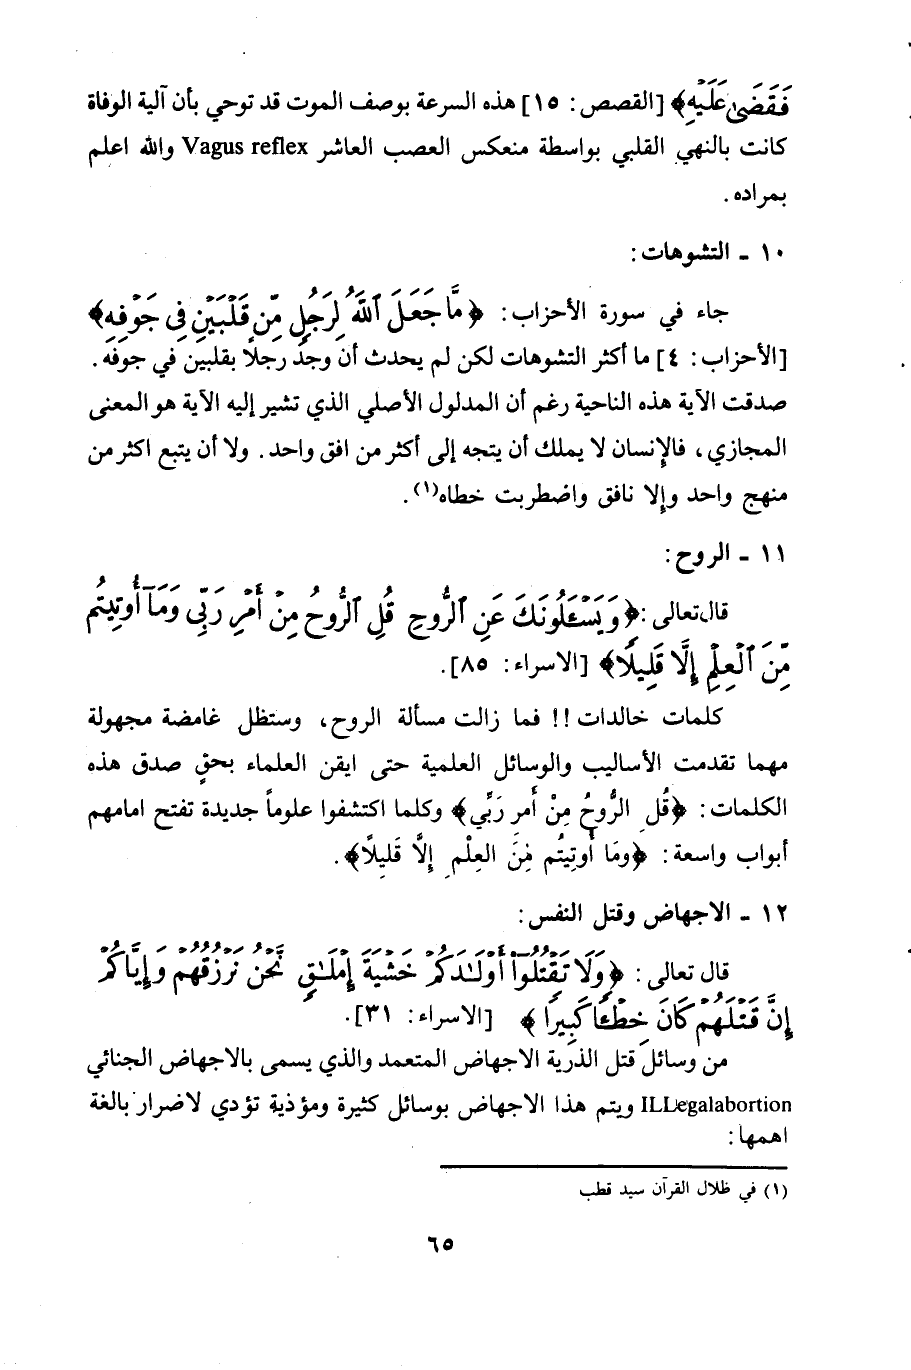 فَقَضَىٰ عَلَيْهِ﴾ [القصص: ١٥] هذه السرعة بوصف الموت قد توحي بأن آلية الوفاة
كانت بالنهي القلبي بواسطة منعكس العصب العاشر Vagus reflex والله اعلم
بمراده.
١٠ - التشوهات:
جاء في سورة الأحزاب: ﴿مَّا جَعَلَ ٱللَّهُ لِرَجُلٍ مِّن قَلْبَيْنِ فِى جَوْفِهِ﴾
[الأحزاب: ٤] ما أكثر التشوهات لكن لم يحدث أن وجد رجلاً بقلبين في جوفه.
صدقت الآية هذه الناحية رغم أن المدلول الأصلي الذي تشير إليه الآية هو المعنى
المجازي، فالإنسان لا يملك أن يتجه إلى أكثر من افق واحد. ولا أن يتبع اكثر من
منهج واحد وإلا نافق واضطربت خطاه(١).
١١ - الروح:
قال تعالى: ﴿وَيَسْـَٔلُونَكَ عَنِ ٱلرُّوحِ قُلِ ٱلرُّوحُ مِنْ أَمْرِ رَبِّى وَمَآ أُوتِيتُم
مِّنَ ٱلْعِلْمِ إِلَّا قَلِيلًا﴾ [الاسراء: ٨٥].
كلمات خالدات!! فما زالت مسألة الروح، وستظل غامضة مجهولة
مهما تقدمت الأساليب والوسائل العلمية حتى ايقن العلماء بحقٍ صدق هذه
الكلمات: ﴿قُل الرُّوحُ مِنْ أمر رَبِّي﴾ وكلما اكتشفوا علوماً جديدة تفتح امامهم
أبواب واسعة: ﴿ومَا أُوتِيتُم مِنَ العِلْم إِلَّا قَليلًا﴾.
١٢ - الاجهاض وقتل النفس:
قال تعالى: ﴿وَلَا تَقْتُلُوٓا۟ أَوْلَـٰدَكُمْ خَشْيَةَ إِمْلَـٰقٍ نَّحْنُ نَرْزُقُهُمْ وَإِيَّاكُمْ
إِنَّ قَتْلَهُمْ كَانَ خِطْـًٔا كَبِيرًا﴾ [الاسراء: ٣١].
من وسائل قتل الذرية الاجهاض المتعمد والذي يسمى بالاجهاض الجنائي
ILLegalabortion ويتم هذا الاجهاض بوسائل كثيرة ومؤذية تؤدي لاضرار بالغة
اهمها:
(١) في ظلال القرآن سيد قطب
٦٥